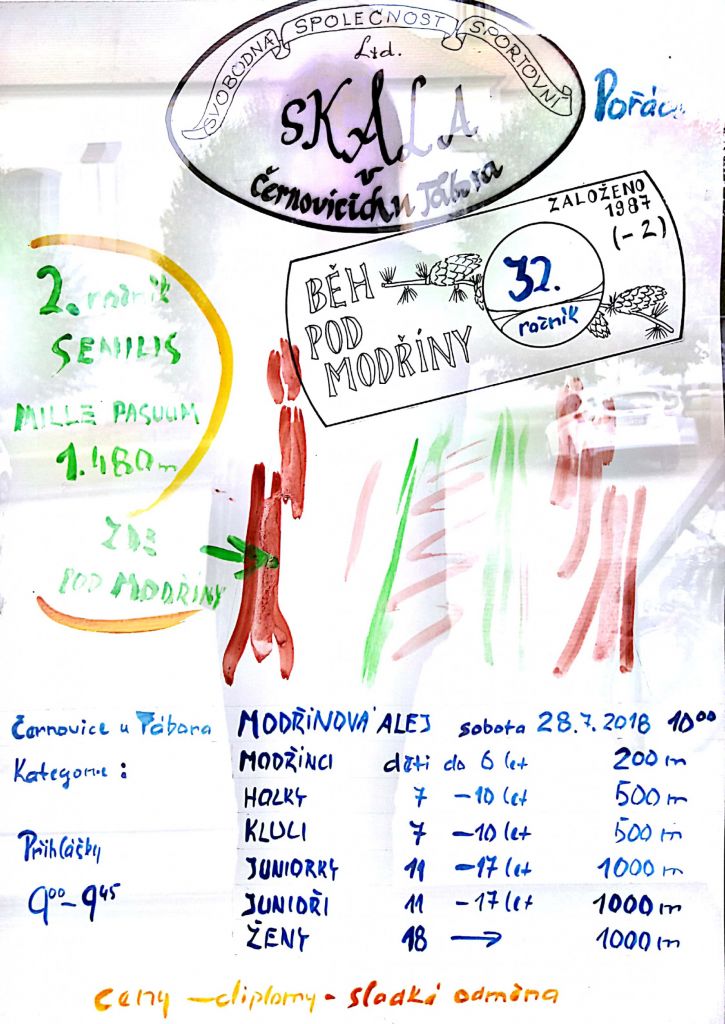 SVOBODNÁ SPOLEČNOST SPORTOVNÍ
Ltd.
SKALA
v
Černovicích u Tábora
ZALOŽENO
1987
(-2)
BĚH
POD
MODŘÍNY
32.
ročník
2. ročník
SEMILIS
MILLE PASUUM
1.480m
ZDE
POD MODŘÍNY
Černovice u Tábora MODŘÍNOVÁ ALEJ sobota 28.7.2018 10⁰⁰
Kategorie: MODŘÍNCI děti do 6 let 200 m
HOLKY 7 – 10 let 500 m
KLUCI 7 – 10 let 500 m
Přihlášky
JUNIORKY 11 – 17 let 1000 m
9⁰⁰ – 9⁴⁵ JUNIOŘI 11 – 17 let 1000 m
ŽENY 18 → 1000 m
ceny – diplomy - sladká odměna